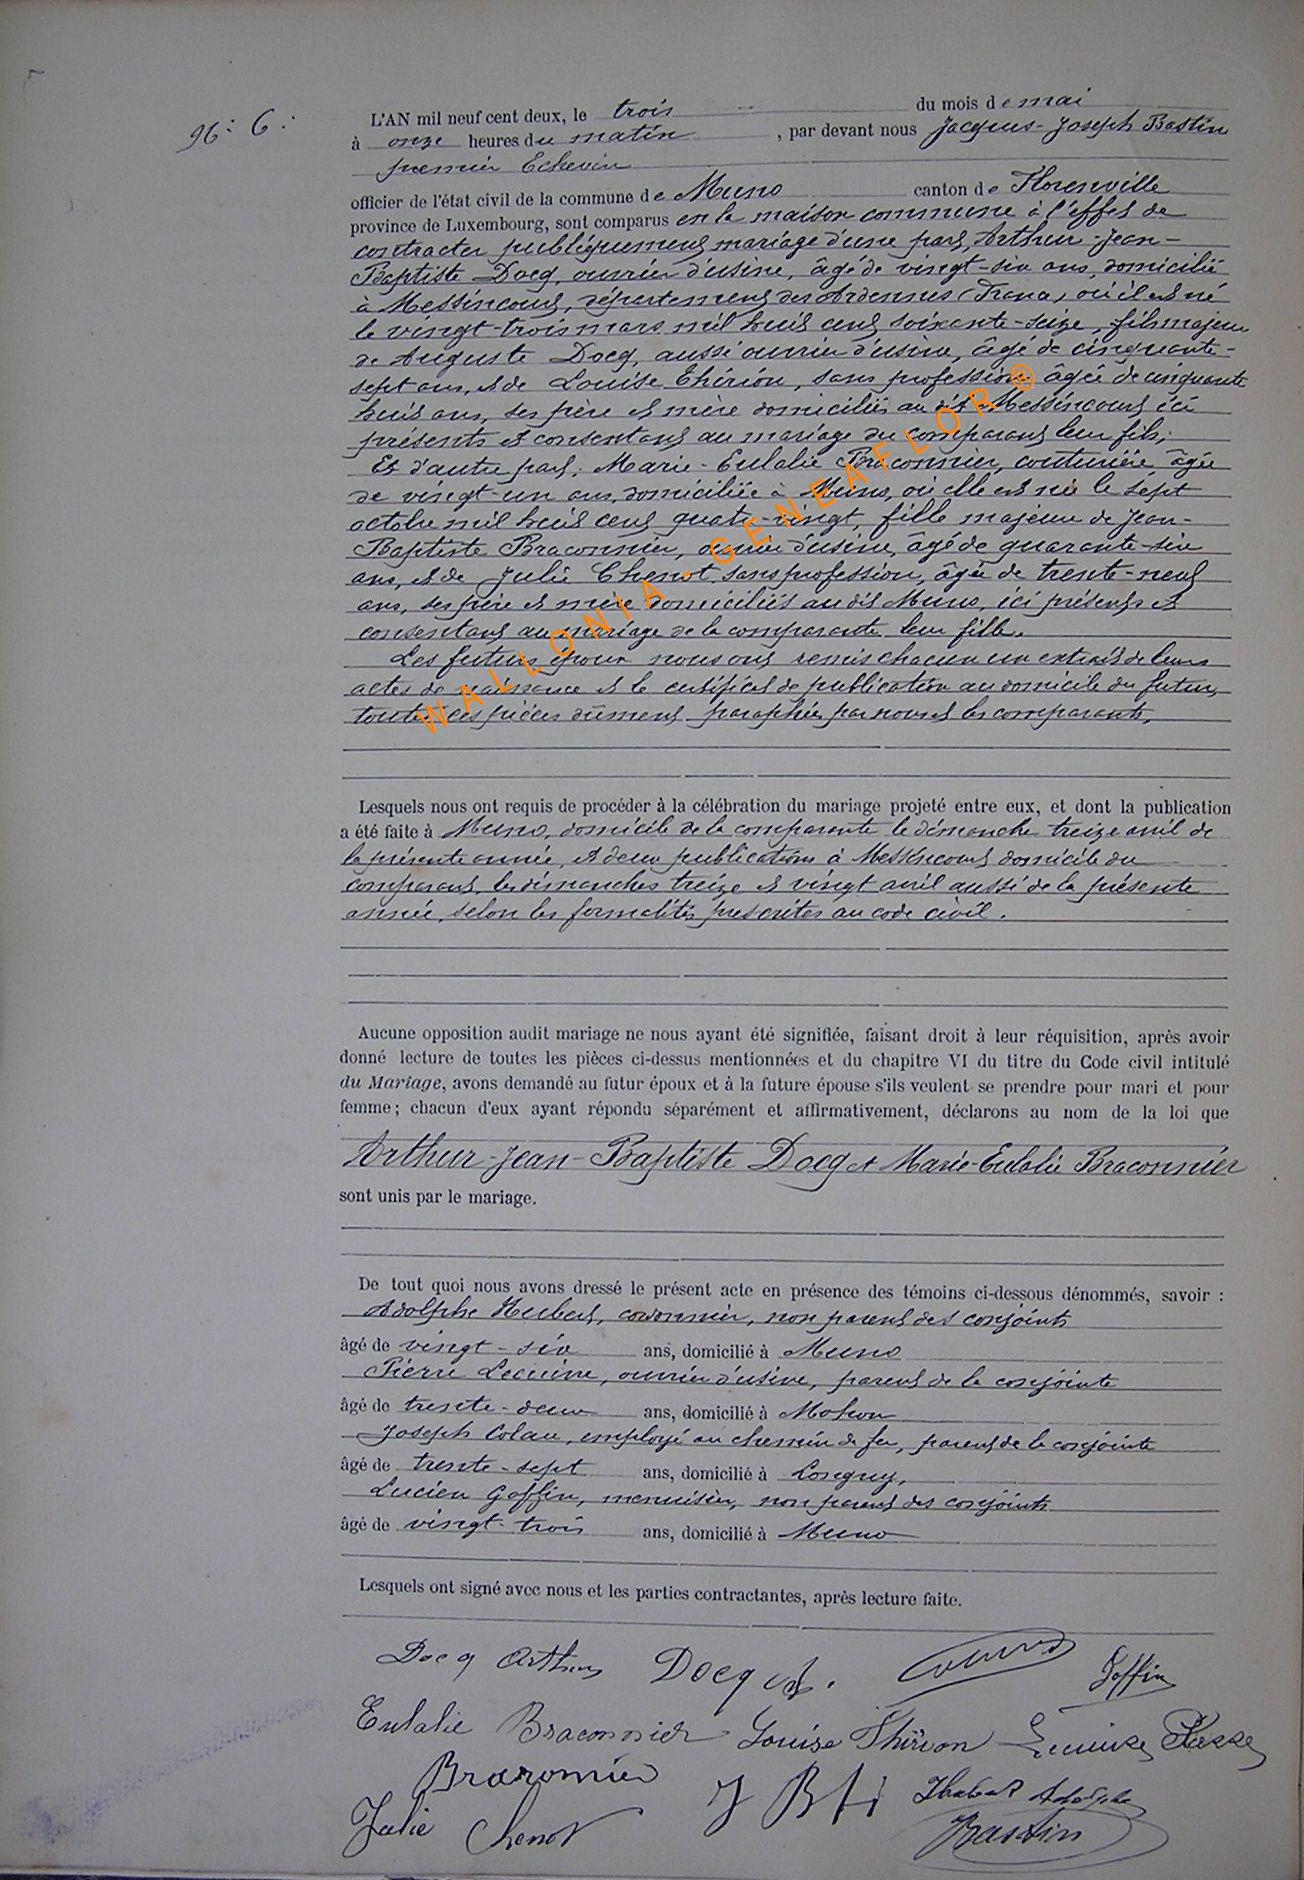 96: 6:
L'AN mil neuf cent deux, le trois du mois de mai
à onze heures du matin, par devant nous Jacques-Joseph Bastin
premier Echevin
officier de l'état civil de la commune de Muno canton de Florenville
province de Luxembourg, sont comparus en la maison commune à l'effet de
contracter publiquement mariage d'une part, Arthur-Jean-
Baptiste Docq, ouvrier d'usine, âgé de vingt-six ans, domicilié
à Messincourt, département des Ardennes (France) où il est né
le vingt-trois mars mil huit cent soixante-seize, fils majeur
de Auguste Docq, aussi ouvrier d'usine, âgé de cinquante-
sept ans, et de Louise Thirion, sans profession âgée de cinquante
huit ans, ses père et mère domiciliés au dit Messincourt ici
présents et consentant au mariage du comparant leur fils;
Et d'autre part: Marie-Eulalie Braconnier, couturière âgée
de vingt-un ans, domiciliée à Muno, où elle est née le sept
octobre mil huit cent quatre-vingt, fille majeure de Jean-
Baptiste Braconnier, ouvrier d'usine, âgé de quarante-six
ans, et de Julie Chenot sans profession, âgée de trente-neuf
ans, ses père et mère domiciliés au dit Muno, ici présents et
consentant au mariage de la comparante leur fille.
Les futurs époux nous ont remis chacun un extrait de leurs
actes de naissance et le certificat de publication au domicile du futur,
toutes ces pièces dûment paraphées par nous et les comparants,
WALLONIA - GENEAFLOR ®
Lesquels nous ont requis de procéder à la célébration du mariage projeté entre eux, et dont la publication
a été faite à Muno, domicile de la comparante le dimanche treize avril de
la présente année, et deux publications à Messincourt domicile du
comparant, les dimanches treize et vingt avril aussi de la présente
année, selon les formalités prescrites au code civil.
Aucune opposition audit mariage ne nous ayant été signifiée, faisant droit à leur réquisition, après avoir
donné lecture de toutes les pièces ci-dessus mentionnées et du chapitre VI du titre du Code civil intitulé
du Mariage, avons demandé au futur époux et à la future épouse s'ils veulent se prendre pour mari et pour
femme; chacun d'eux ayant répondu séparément et affirmativement, déclarons au nom de la loi que
Arthur-Jean-Baptiste Docq et Marie-Eulalie Braconnier
sont unis par le mariage.
De tout quoi nous avons dressé le présent acte en présence des témoins ci-dessous dénommés, savoir :
Adolphe Hubert, cordonnier, non parent des conjoints
âgé de vingt-six ans, domicilié à Muno
Pierre Lecuivre, ouvrier d'usine, parent de la conjointe
âgé de trente-deux ans, domicilié à Mohon
Joseph Colau, employé au chemin de fer, parent de la conjointe
âgé de trente-sept ans, domicilié à Longuy,
Lucien Goffin, menuisier, non parent des conjoints
âgé de vingt-trois ans, domicilié à Muno
Lesquels ont signé avec nous et les parties contractantes, après lecture faite.
Docq Arthur Docq Goffin
Eulalie Braconnier Louise Thirion
Braconnier Hubert Adolphe
Julie Chenot J Bastin